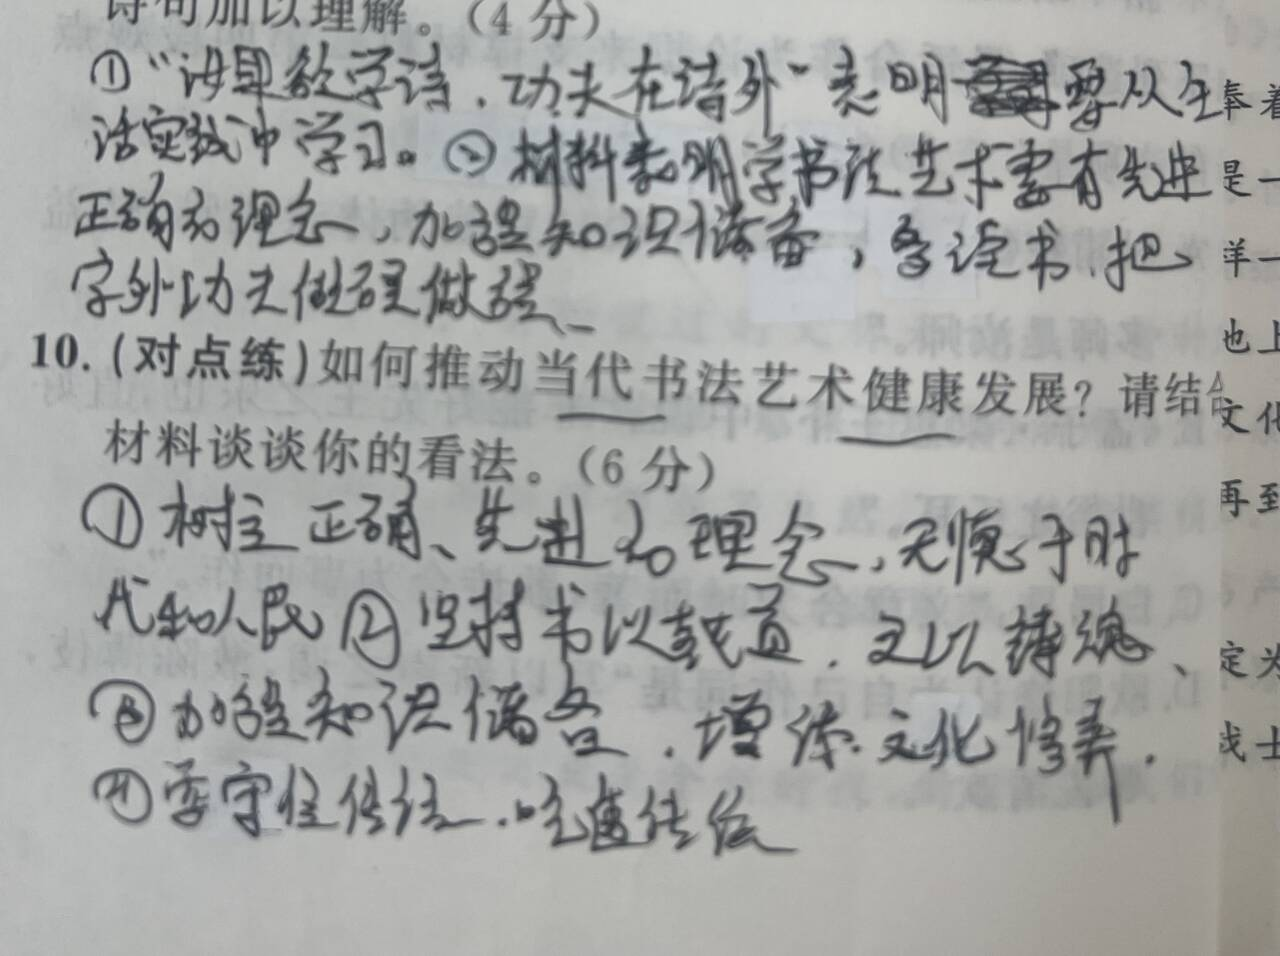 诗句加以理解。（4分）
①“汝果欲学诗，功夫在诗外”表明要从生
活实践中学习。②材料表明学书法艺术要有先进
正确的理念，加强知识储备，多读书，把
字外功夫做硬做强、
10.（对点练）如何推动当代书法艺术健康发展？请结合
材料谈谈你的看法。（6分）
①树立正确、先进的理念，无愧于时
代和人民②坚持书以载道，文以铸魂、
③加强知识储备，增添文化修养，
④要守住传统，吃透传统
奉着
是一
洋一
也上
文化
再到
定为
战士